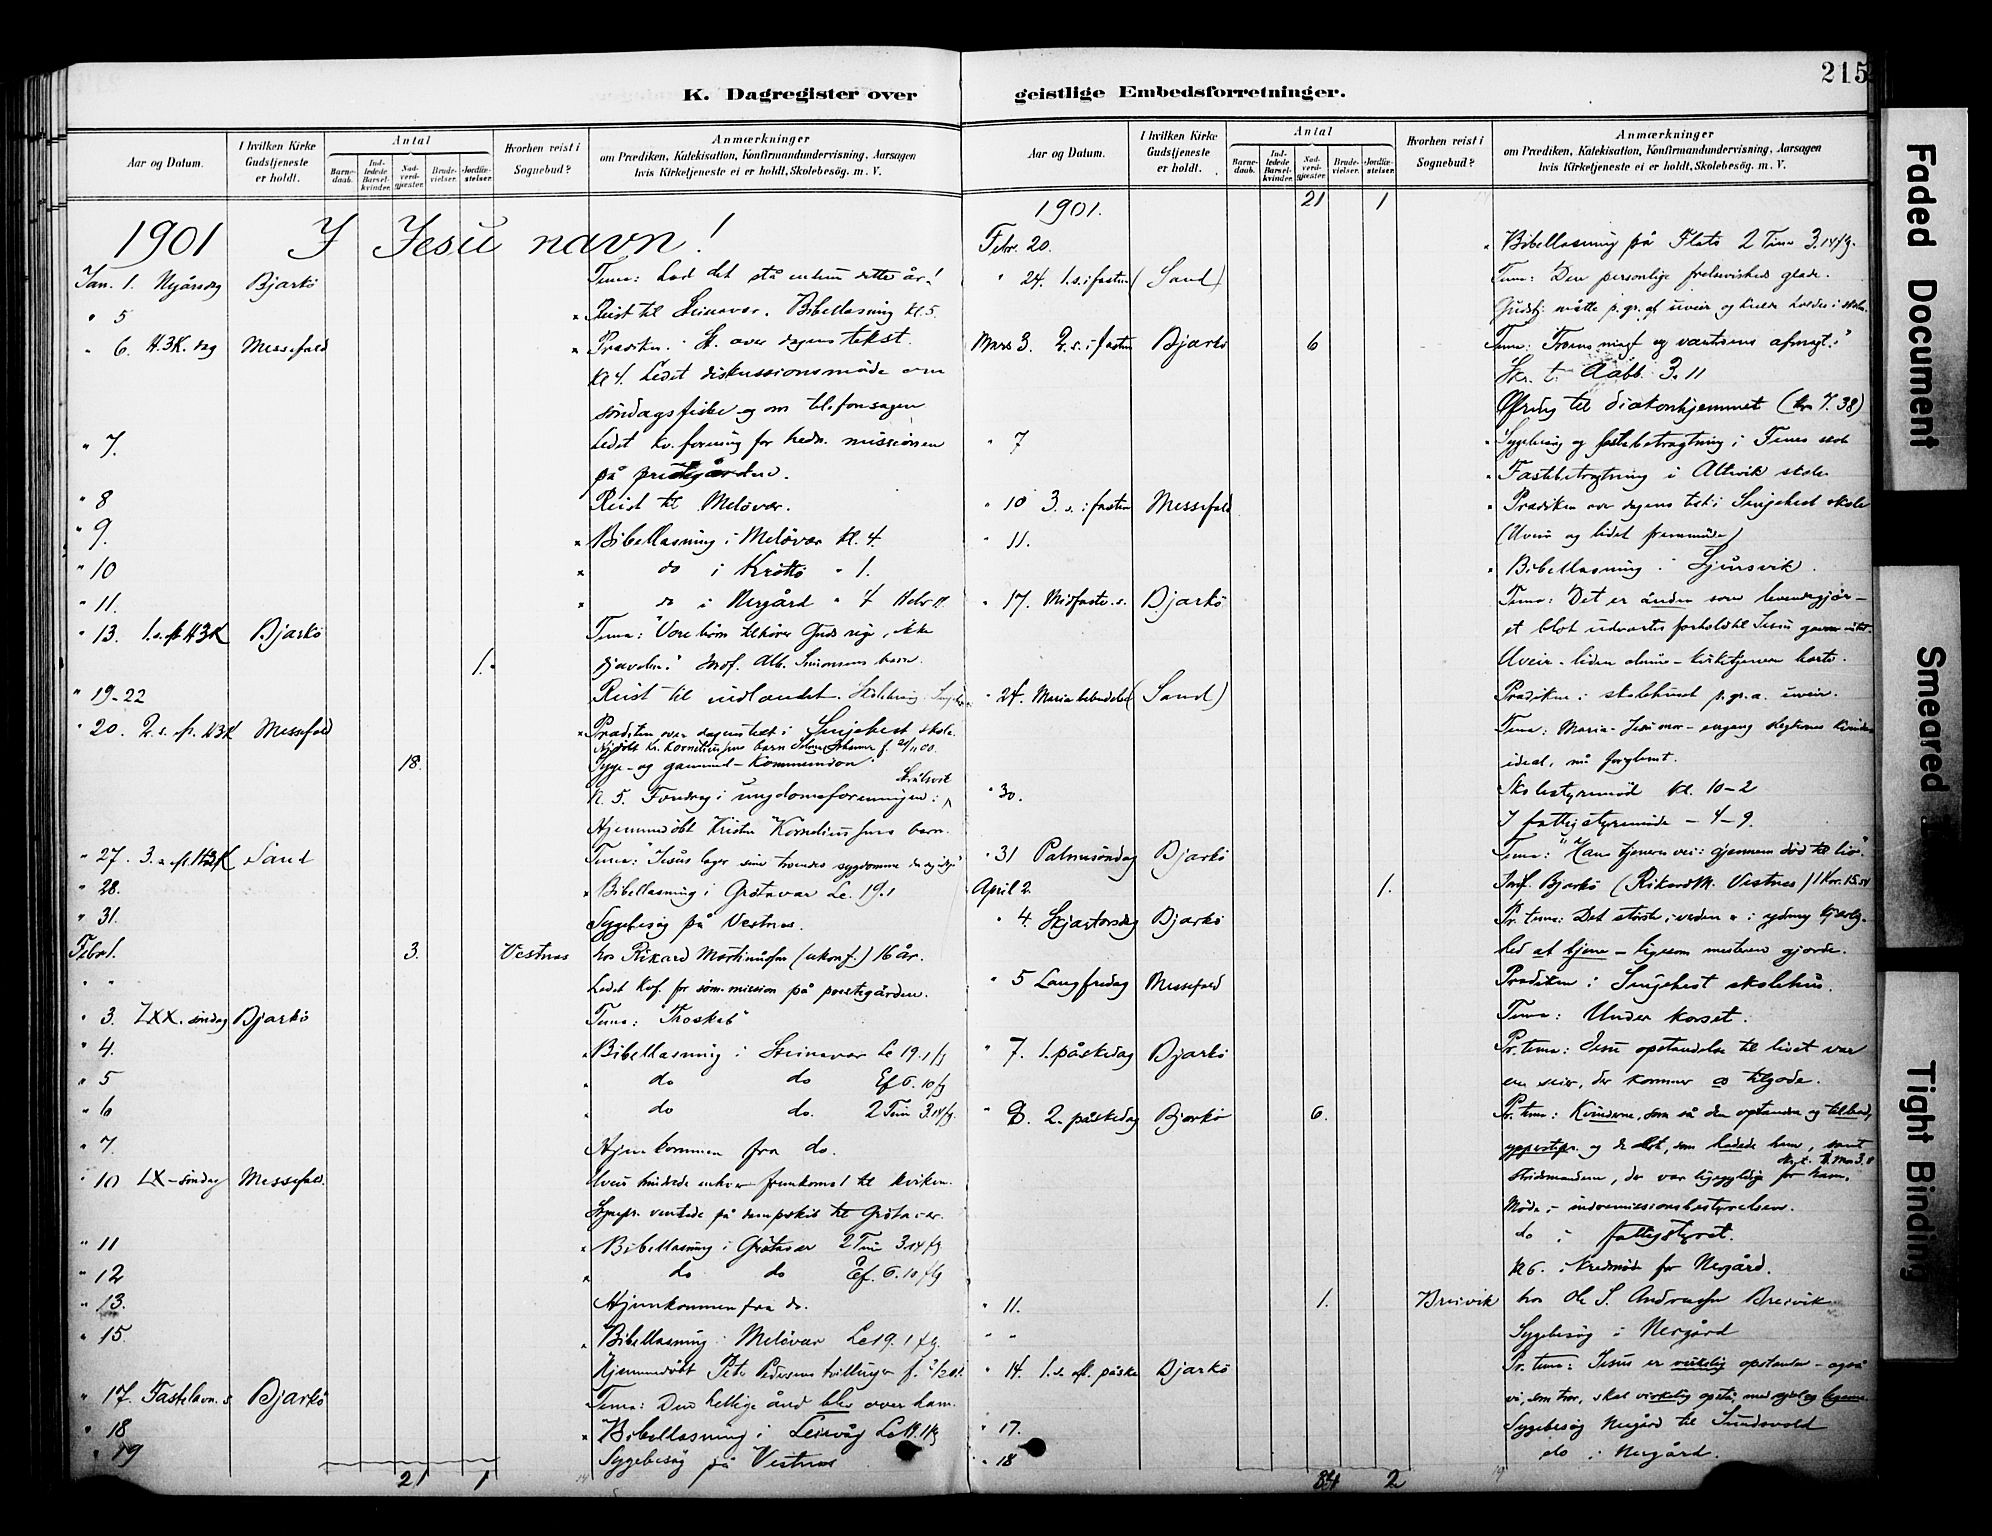 215
K. Dagregister over geistlige Embedsforretninger.
Aar og Datum.
I hvilken Kirke Gudstjeneste er holdt.
Antal
Barne-daab.
Ind-ledede Barsel-kvinder.
Nad-verd-gjæster.
Brude-vielser.
Jordfæ-stelser.
Hvorhen reist i Sognebud?
Anmærkninger
om Prædiken, Katekisation, Konfirmandundervisning, Aarsagen
hvis Kirketjeneste ei er holdt, Skolebesøg. m. V.
1901 I Jesu navn!
Jan. 1. Nyårsdag Bjarkö Tema: Lad det stå endnu dette år!
" 5 Reist til Steinavær. Bibellæsning kl. 5.
" 6. H3K. dag Messefjeld Prædiken. St. over dagens tekst.
Kl 4. Ledet diskussionsmöde om
söndagsfiske og om telefonsagen
" 7. Ledet kv. forening for hedn. missionen
på prestegården.
" 8 Reist til Melövær.
" 9. Bibellæsning i Melövær kl. 4.
" 10 do i Kröttö " 1.
" 11. do i Nergård " 4 Hebr 11.
" 13. 1. s. ef. H3K Bjarkö Tema: "Vore börn tilhörer Guds rige, ikke
1. djævelen." Jordf. Alb. Simonsens barn.
" 19-22 Reist til indlandet.
" 20. 2. s. ef. H3K Messefjeld Prædiken over dagens tekst i Senjehest skole.
18. Syge- og gammel-kommunion.
Kl. 5. Foredrag i ungdomsforeningen i
Hjemmedöbt Krister Korneliussens barn.
" 27. 3. s. ef. H3K Sand Tema: "Jesus tager sine troendes sygdomme
" 28. Bibellæsning i Grötavær Lc. 19.1
" 31. Sygebesög på Vestnes.
Febr 1. 3. Vestnes hos Rikard Martinussen (ukonf.) 16 år.
" " Ledet kvf. for söm. mission på prestegården.
" 3. LXX. söndag Bjarkö Tema: "Troskab"
" 4. Bibellæsning i Steinavær Lc 19.1 fg
" 5 do do Ef 6. 10 fg
" 6 do do. 2 Tim 3.14 fg.
" 7. Hjemkommen fra do.
" 10 LX-söndag Messefjeld. Uveir hindrede enhver fremkomst til kirken.
ventede på dampskib til Grötavær.
" 11 Bibellæsning i Grötavær 2 Tim 3.14 fg
" 12 do do Ef. 6. 10 flg
" 13. Hjemkommen fra do.
" 15 Bibellæsning i Melövær Lc 19. 1 flg.
Hjemmedöbt Peter Pedersens tvillinger f.
" 17. Fastelavn. s. Bjarkö Tema: Den hellige ånd blev over ham.
" 18 Bibellæsning i Leirvåg
" 19 Sygebesög på Vestnes
21 1
Aar og Datum.
I hvilken Kirke Gudstjeneste er holdt.
Antal
Barne-daab.
Ind-ledede Barsel-kvinder.
Nad-verd-gjæster.
Brude-vielser.
Jordfæ-stelser.
Hvorhen reist i Sognebud?
Anmærkninger
om Prædiken, Katekisation, Konfirmandundervisning, Aarsagen
hvis Kirketjeneste ei er holdt, Skolebesøg. m. V.
1901. 21 1
Febr. 20. Bibellæsning på Flatö 2 Tim 3.14 fg.
" 24. 1. s. i fasten (Sand) Tema: Den personlige frelsevisheds glæde.
Gudstj. måtte p. gr. af uveir og kulde holdes i skolen.
Mars 3. 2. s. i fasten Bjarkö 6 Tema: "Troens magt og vantroens afmagt."
Skr. t. Aab. 3.11
Ofring til diakonhjemmet (kr. 7.38)
" 7 Sygebesög og fastebetragtning i Fenes skole
Fastebetragtning i Altevik skole
" 10 3. s. i fasten Messefjeld Prædiken over dagens tekst i Senjehest skole
(Uveir og lidet fremmöde)
" 11. Bibellæsning i
" 17. Midfaste. s. Bjarkö Tema: Det er ånden som levendegjör -
et blot udvortes forhold til Jesus gavner intet.
Uveir - liden almue - kirketjeneren borte.
" 24. Maria bebudelse (Sand) Prædiken i skolehuset p. gr. a. uveir.
Tema: Maria - Jesu mor - engang slegternes kvinde
ideal, nu forglemt.
" 30. Skolestyremöde kl. 10-2
I fattigstyremöde - 4-9.
" 31 Palmesöndag Bjarkö Tema: "Hans tjeneres vei: gjennem död til liv".
April 2. 1. Jordf. Bjarkö (Rikard M. Vestnes) 1 Kor. 15.
" 4. Skjærtorsdag Bjarkö Pr. tema: Det störste i verden er i ydmyg kjærlig-
hed at tjene - ligesom mesteren gjorde.
" 5 Langfredag Messefjeld Prædiken i Senjehest skolehus.
Tema: Under korset.
" 7. 1. påskedag Bjarkö Pr. tema: Jesu opstandelse til livet var
en seier, der kommer os tilgode.
" 8. 2. påskedag Bjarkö 6. Pr. tema: Kvinderne, som så den opstandne og tilbad,
ypperstepr. og de som hadede ham, samt
stridsmændene, der var ligegyldige for ham.
Möde i indremissionsbestyrelsen.
do i fattigstyret.
Kl 6. i kredsmöde for Nergård.
" 11. 1. Breivik hos Ole S. Andreassen Breivik
" " Sygebesög i Nergård
" 14. 1. s. ef. påske Bjarkö Pr. tema: Jesus er virkelig opstanden - også
vi, som tror, skal virkelig opstå, med sjæl og legeme.
" 17. Sygebesög Nergård til Sundsvold
" 18 do i Nergård.
34 2
Faded Document
Smeared
Tight Binding